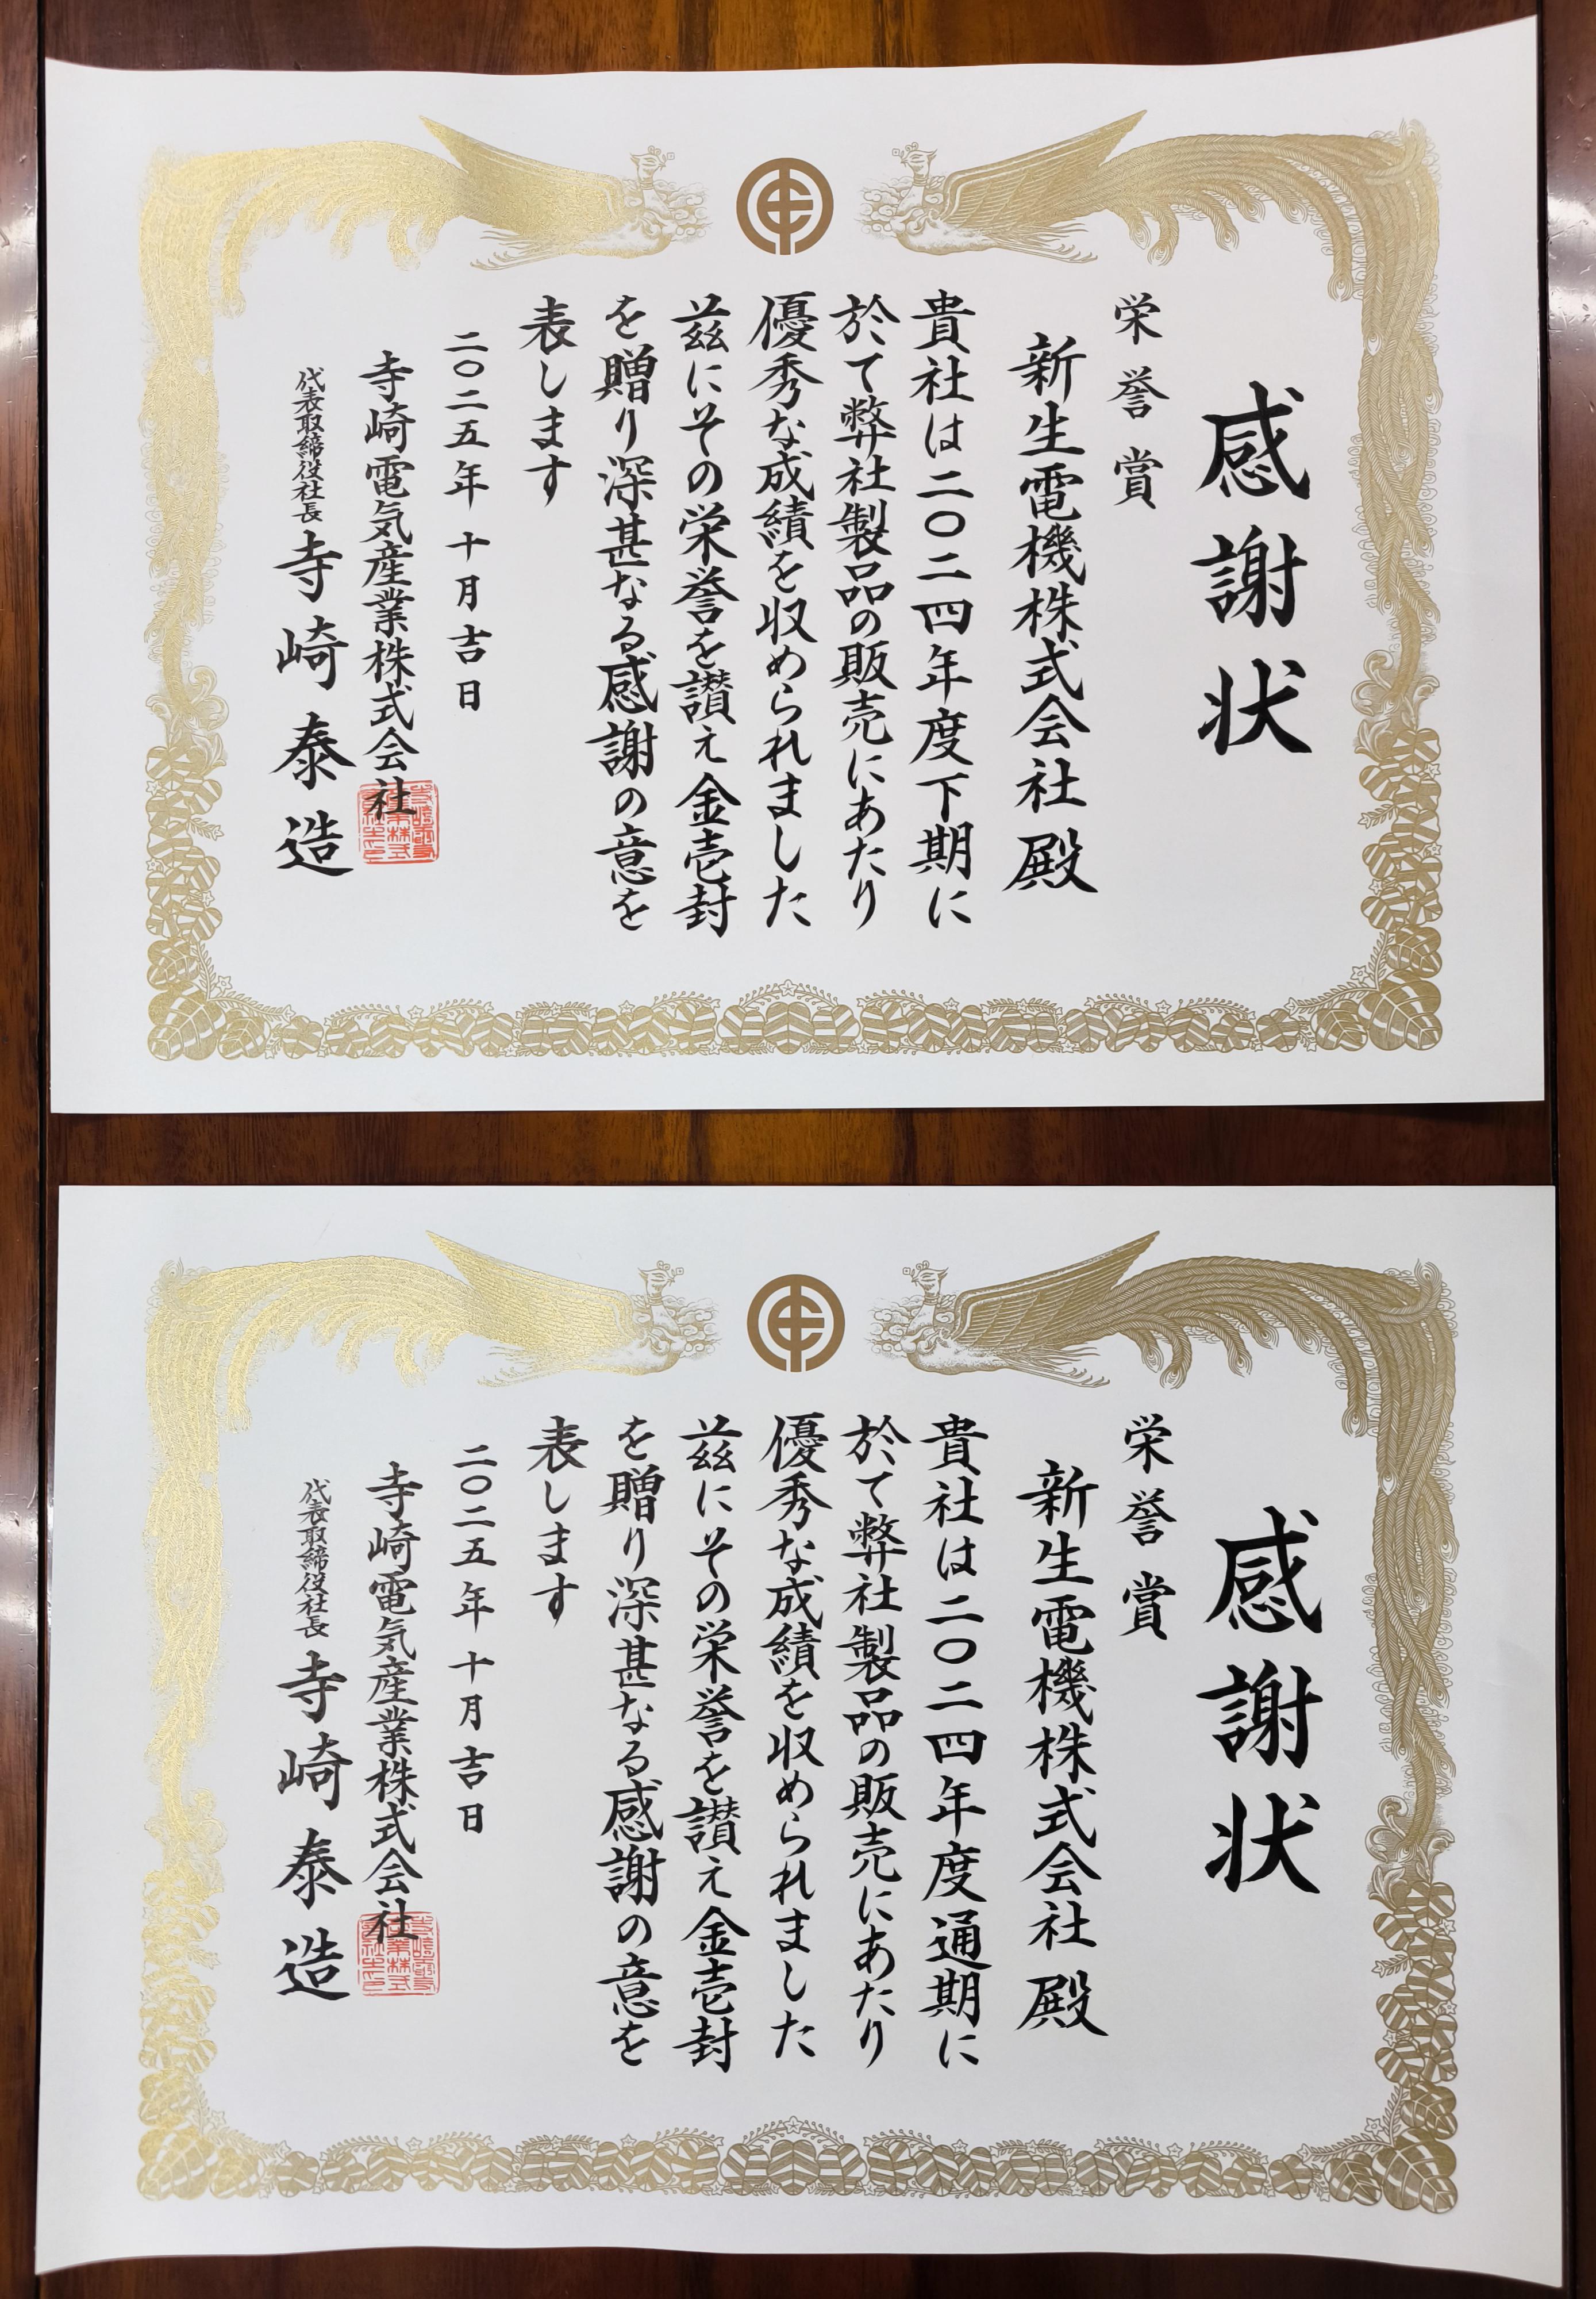 感謝状
栄誉賞
新生電機株式会社殿
貴社は二〇二四年度下期に
於て弊社製品の販売にあたり
優秀な成績を収められました
茲にその栄誉を讃え金壱封
を贈り深甚なる感謝の意を
表します
二〇二五年十月吉日
寺崎電気産業株式会社
代表取締役社長 寺崎泰造
感謝状
栄誉賞
新生電機株式会社殿
貴社は二〇二四年度通期に
於て弊社製品の販売にあたり
優秀な成績を収められました
茲にその栄誉を讃え金壱封
を贈り深甚なる感謝の意を
表します
二〇二五年十月吉日
寺崎電気産業株式会社
代表取締役社長 寺崎泰造